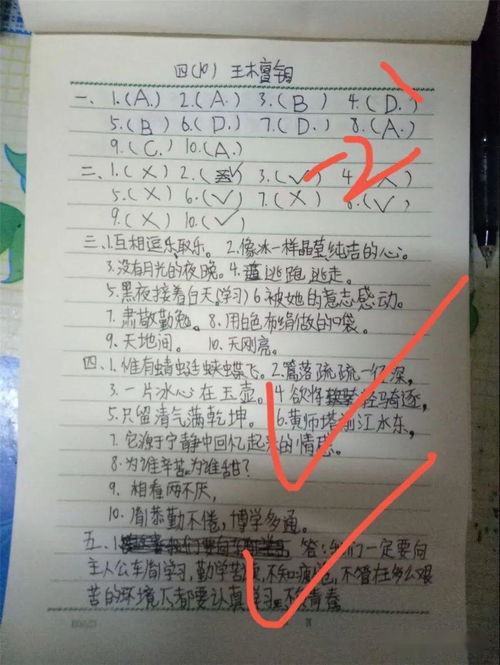 四(10) 王木富钥
一、1.(A.) 2.(A.) 3.(B) 4.(D.)
5.(B) 6.(D.) 7.(D.) 8.(A.)
9.(C.) 10.(A.)
二、1.(×) 2.(√) 3.(√) 4.(×)
5.(×) 6.(√) 7.(×) 8.(√)
9.(×) 10.(√)
-2
三、1.互相逗乐取乐。 2.像冰一样晶莹纯洁的心。
3.没有月光的夜晚。4.逃跑逃走。
5.黑夜接着白天(学习) 6.被她的意志感动。
7.肃敬勤勉。 8.用白色布绢做的口袋。
9.天地间。 10.天刚亮。
四、1.惟有蜻蜓蛱蝶飞。2.篱落疏疏一径深,
3.一片冰心在玉壶。 4.欲将轻骑逐,
5.只留清气满乾坤。 6.黄师塔前江水东,
7.它源于宁静中回忆起来的情感。
8.为谁辛苦为谁甜?
9.相看两不厌,
10.恭勤不倦,博学多通。
五、1. 答:我们一定要向
主人公车胤学习,勤学苦,不知疲,不管在多么艰
苦的环境下都要认真学习,不负青春